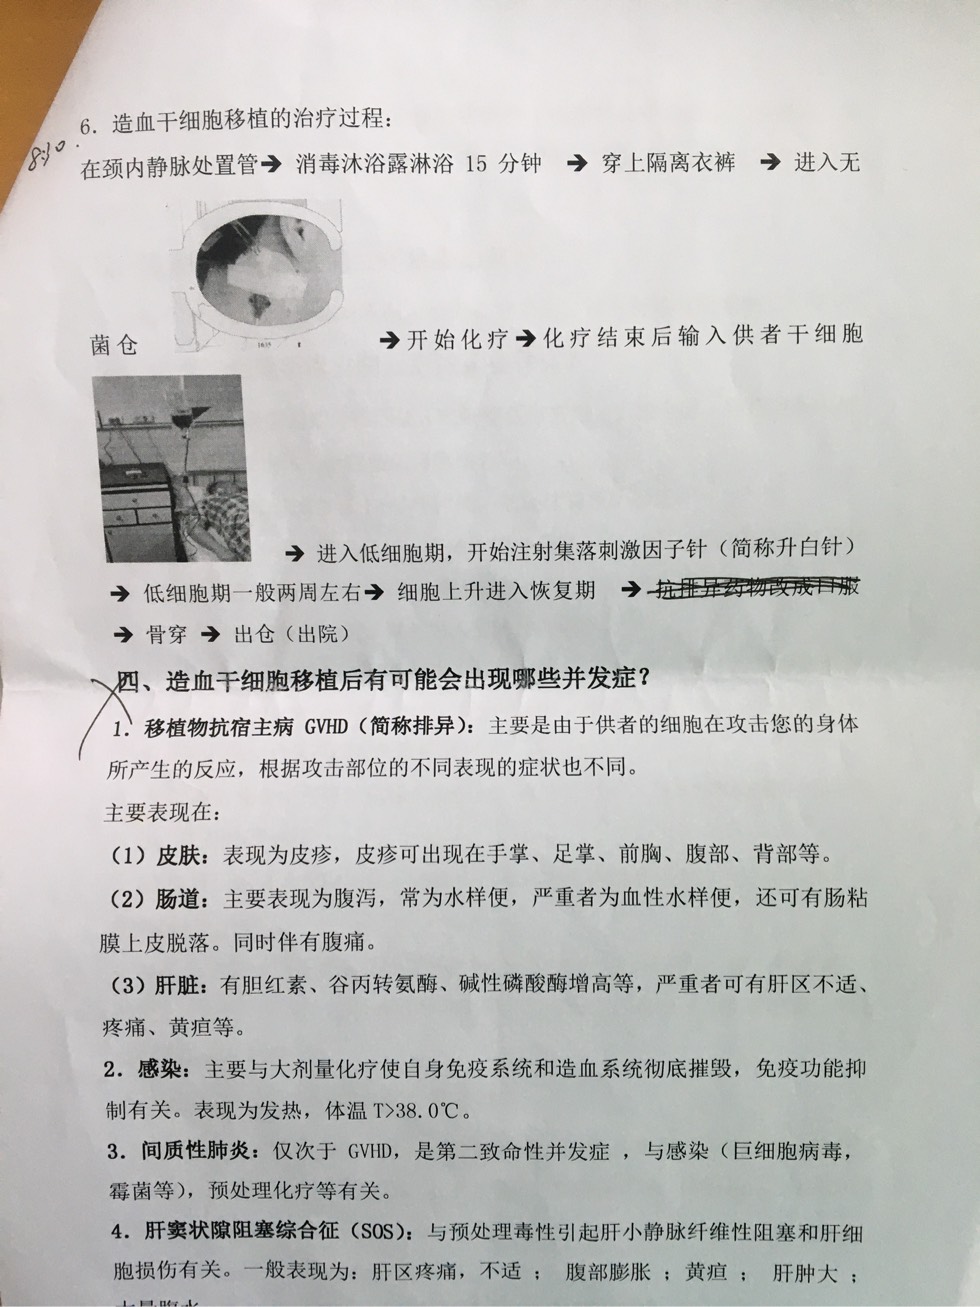 6. 造血干细胞移植的治疗过程:
8:10.
在颈内静脉处置管➔ 消毒沐浴露淋浴 15 分钟 ➔ 穿上隔离衣裤 ➔ 进入无
菌仓 ➔开始化疗➔化疗结束后输入供者干细胞
➔ 进入低细胞期，开始注射集落刺激因子针（简称升白针）
➔ 低细胞期一般两周左右➔ 细胞上升进入恢复期 ➔ 抗排异药物改成口服
➔ 骨穿 ➔ 出仓（出院）
四、造血干细胞移植后有可能会出现哪些并发症？
1. 移植物抗宿主病 GVHD（简称排异）：主要是由于供者的细胞在攻击您的身体
所产生的反应，根据攻击部位的不同表现的症状也不同。
主要表现在：
（1）皮肤：表现为皮疹，皮疹可出现在手掌、足掌、前胸、腹部、背部等。
（2）肠道：主要表现为腹泻，常为水样便，严重者为血性水样便，还可有肠粘
膜上皮脱落。同时伴有腹痛。
（3）肝脏：有胆红素、谷丙转氨酶、碱性磷酸酶增高等，严重者可有肝区不适、
疼痛、黄疸等。
2. 感染：主要与大剂量化疗使自身免疫系统和造血系统彻底摧毁，免疫功能抑
制有关。表现为发热，体温 T>38.0℃。
3. 间质性肺炎：仅次于 GVHD，是第二致命性并发症 ，与感染（巨细胞病毒，
霉菌等），预处理化疗等有关。
4. 肝窦状隙阻塞综合征（SOS）：与预处理毒性引起肝小静脉纤维性阻塞和肝细
胞损伤有关。一般表现为：肝区疼痛，不适 ； 腹部膨胀 ；黄疸 ； 肝肿大 ；